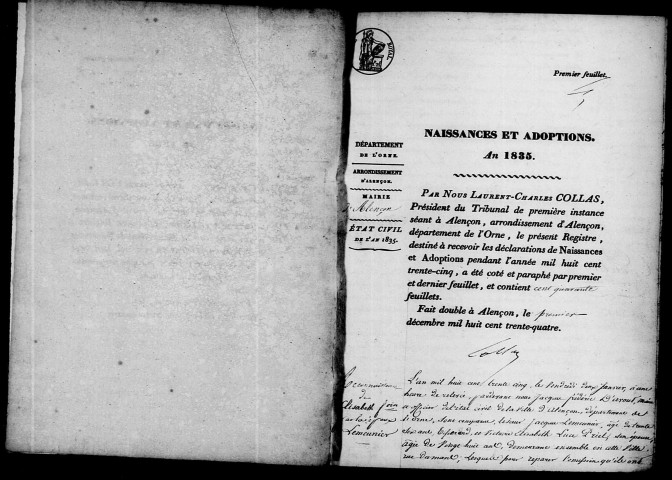 Premier feuillet.
NAISSANCES ET ADOPTIONS.
An 1835.
DÉPARTEMENT
DE L'ORNE.
ARRONDISSEMENT
D'ALENÇON.
MAIRIE
d'Alençon
ÉTAT CIVIL
DE L'AN 1835.
PAR NOUS LAURENT-CHARLES COLLAS,
Président du Tribunal de première instance
séant à Alençon, arrondissement d'Alençon,
département de l'Orne, le présent Registre,
destiné à recevoir les déclarations de Naissances
et Adoptions pendant l'année mil huit cent
trente-cinq, a été coté et paraphé par premier
et dernier feuillet, et contient cent quarante
feuillets.
Fait double à Alençon, le premier
décembre mil huit cent trente-quatre.
Collas
Reconnaissance
de
Elisabeth
Lemeunier
L'an mil huit cent trente cinq, le vendredi deux janvier, à une
heure de relevée, pardevant nous Jacques
officier de l'état civil de la ville d'Alençon, département de
l'Orne, sont comparus, le sieur Jacques Lemeunier, âgé de trente
six ans et Victoire Elisabeth son épouse,
âgée de vingt huit ans, demeurant ensemble en cette ville
rue lesquels pour réparer l'omission qu'ils ont